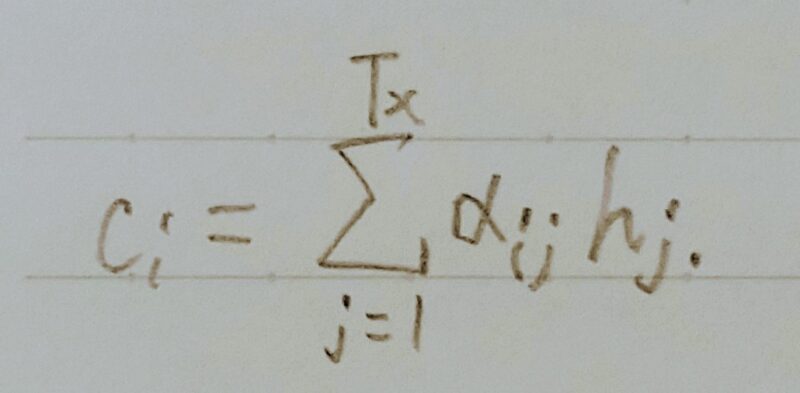 c_i = \sum_{j=1}^{T_x} \alpha_{ij} h_j.